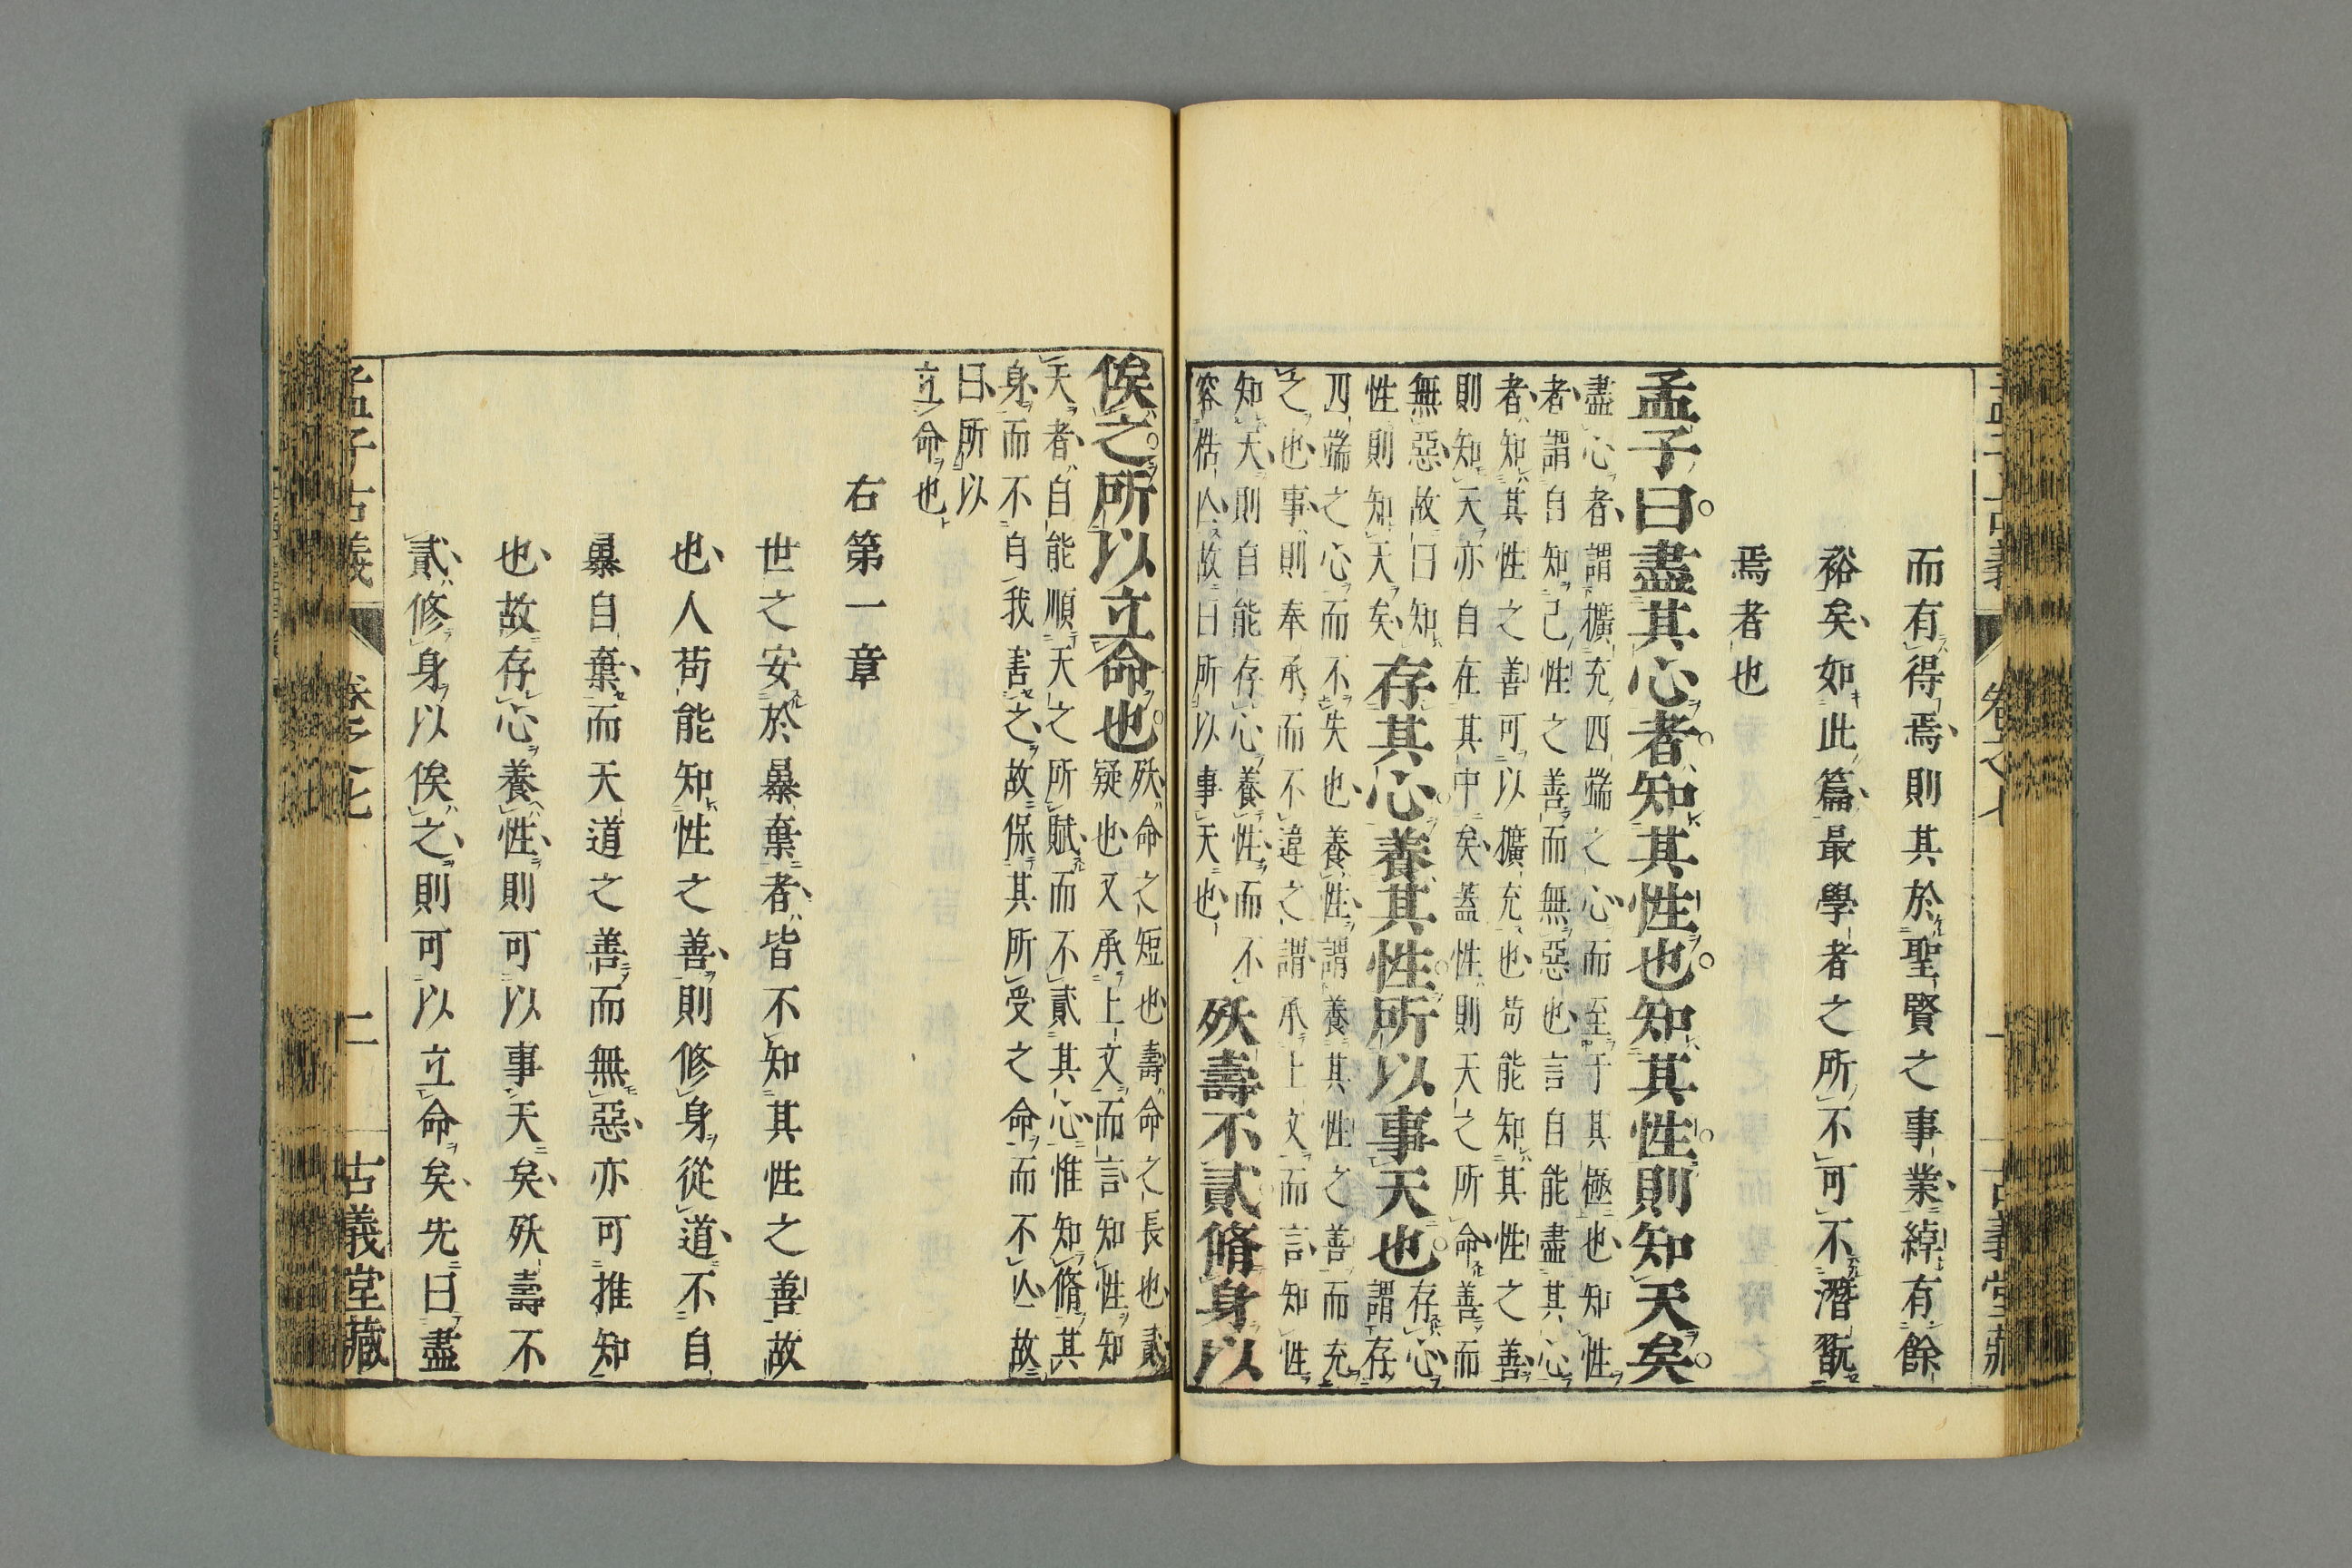 孟子古義 卷之七 一 古義堂藏
而有得焉則其於聖賢之事業綽有餘
裕矣如此篇最學者之所不可不潛翫
焉者也
孟子曰盡其心者知其性也知其性則知天矣
盡心者謂擴充四端之心而至于其極也知性
者謂自知己性之善而無惡也言自能盡其心
者知其性之善可以擴充也苟能知其性之善
則知天亦自在其中矣蓋性則天之所命善而
無惡故曰知
性則知天矣
存其心養其性所以事天也
存心
謂存
端之心而不失也養性謂養其性之善而充
之也事則奉承而不違之謂承上文而言知性
知天則自能存心養性而不
容梏亾故曰所以事天也
殀壽不貳脩身以
俟之所以立命也
殀命之短也壽命之長也貳
疑也又承上文而言知性知
天者自能順天之所賦而不貳其心惟知脩其
身而不自我害之故保其所受之命而不亾故
曰所以
立命也
右第一章
世之安於暴棄者皆不知其性之善故
也人苟能知性之善則修身從道不自
暴自棄而天道之善而無惡亦可推知
也故存心養性則可以事天矣殀壽不
貳修身以俟之則可以立命矣先曰盡
孟子古義 卷之七 二 古義堂藏